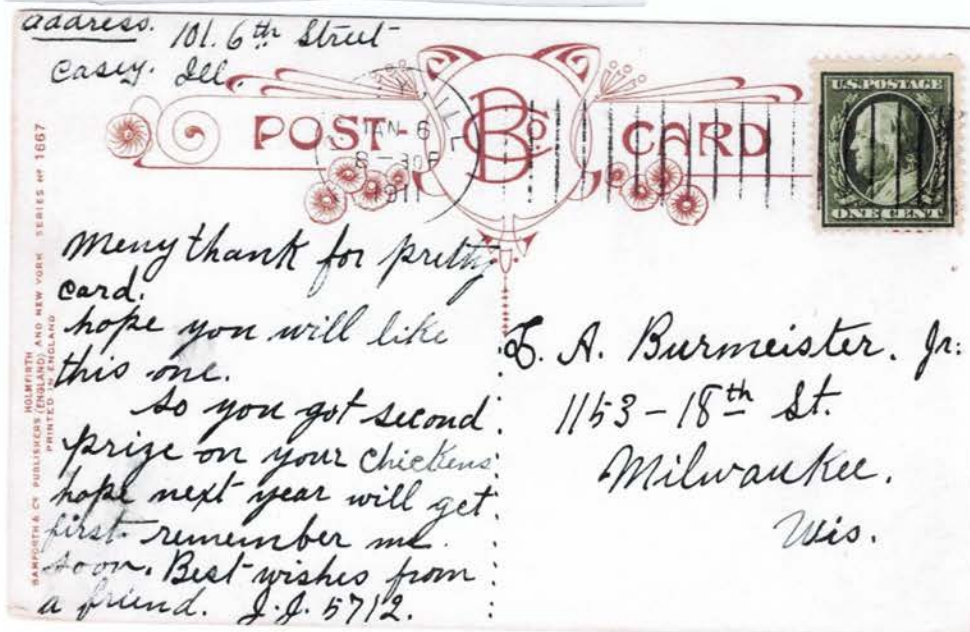 address. 101. 6th Street
Casey. Ill.
POST CARD
B Co.
JAN 6
8-30P
1911
U.S. POSTAGE
ONE CENT
BAMFORTH & CO PUBLISHERS (ENGLAND) AND NEW YORK SERIES No 1667
HOLMFIRTH
PRINTED IN ENGLAND
Meny thank for pretty
card.
hope you will like
this one.
so you got second
prize on your chickens
hope next year will get
first. remember me
soon. Best wishes from
a friend. J.J. 5712.
A. Burmeister. Jr:
1153-18th St.
Milwaukee.
Wis.